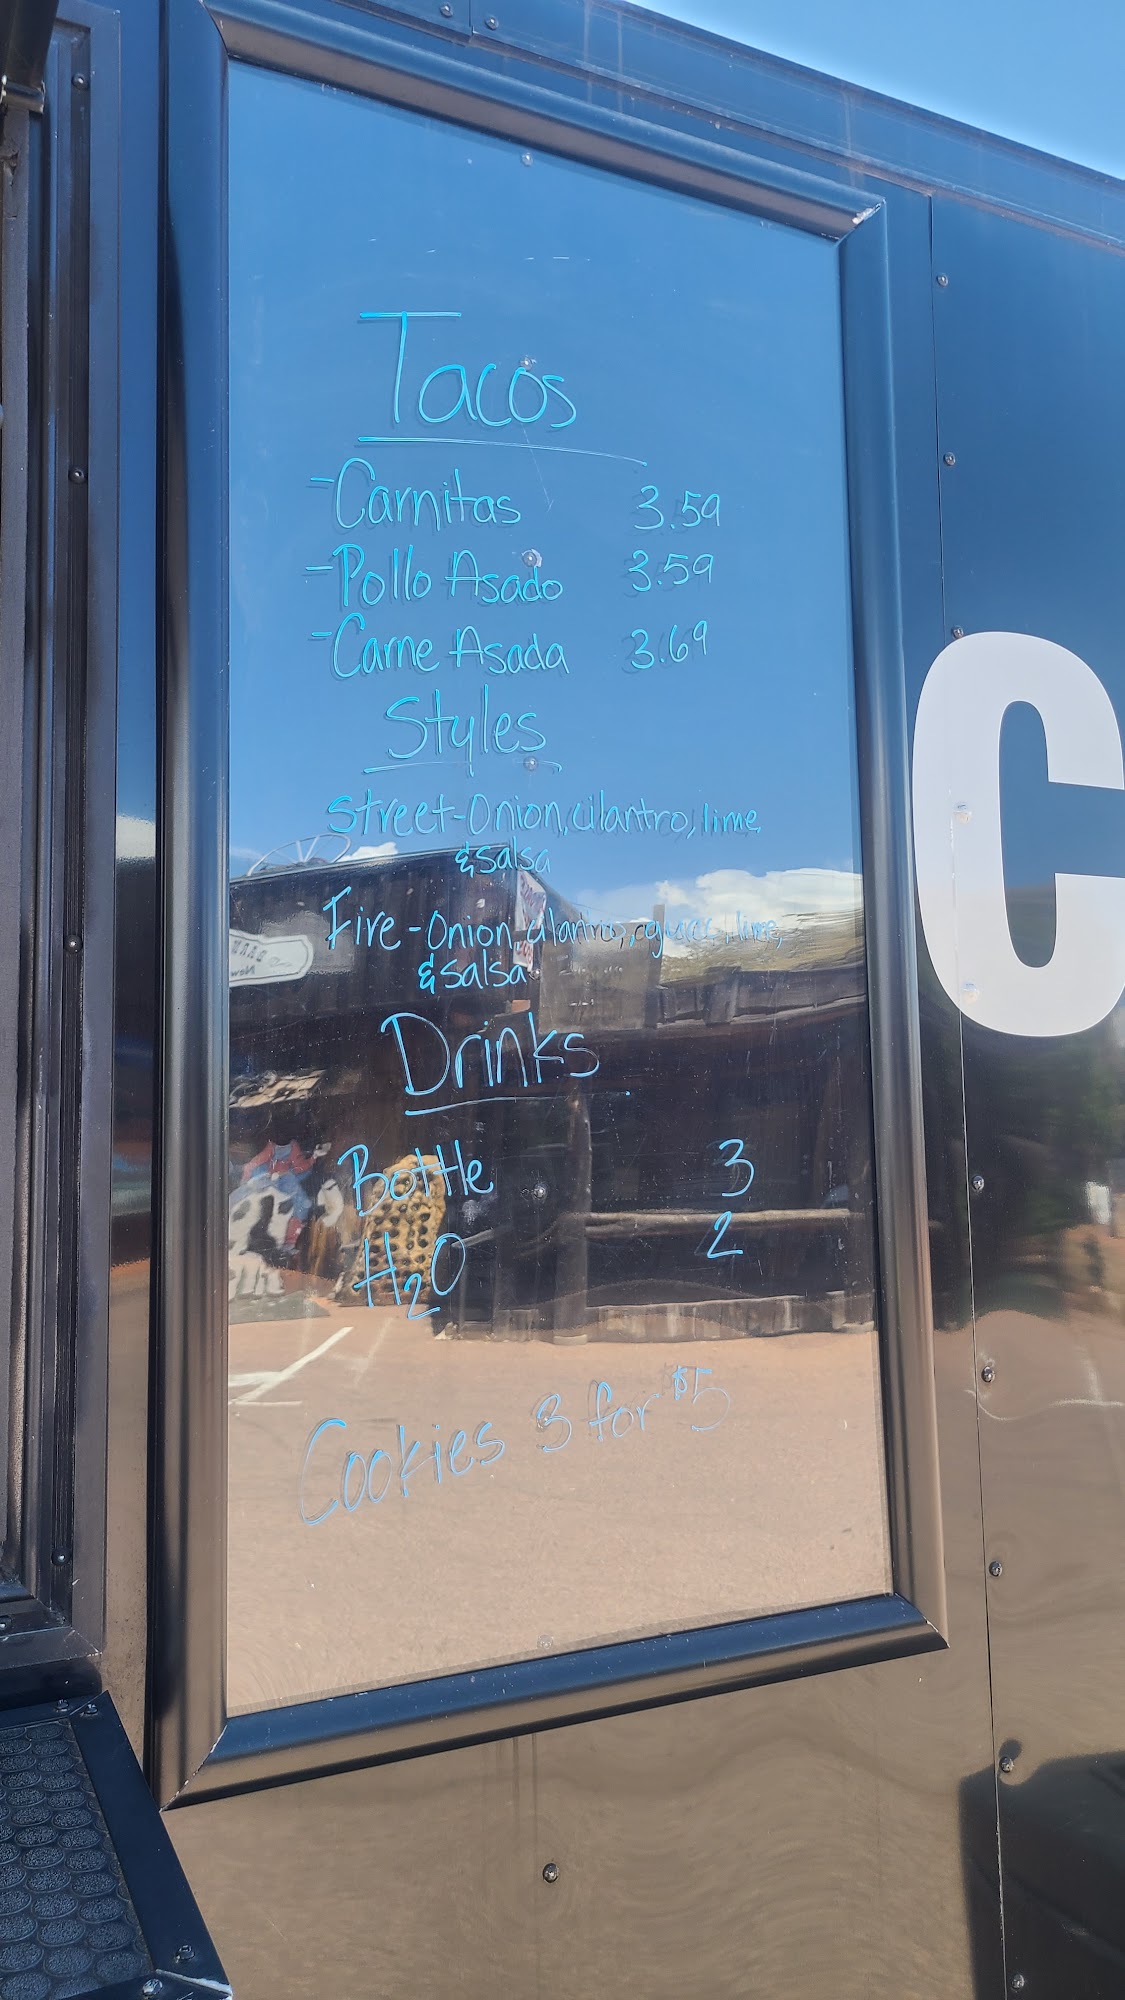 Tacos
-Carnitas 3.59
-Pollo Asado 3.59
-Carne Asada 3.69
Styles
Street-Onion, cilantro, lime,
& salsa
Fire-Onion, cilantro, guac, lime,
& salsa
Drinks
Bottle 3
H2O 2
Cookies 3 for $5
C